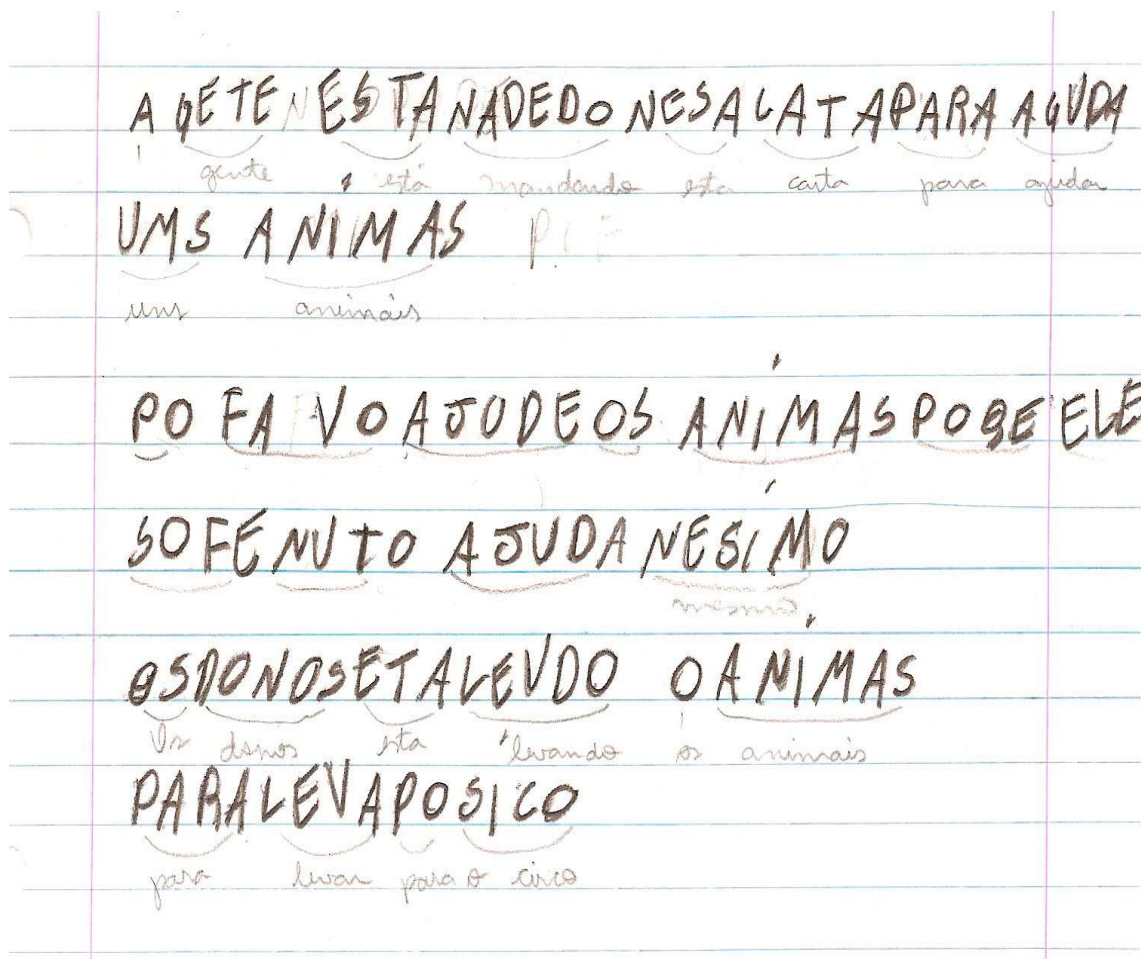 A GETE ESTA NADEDO NESA CATA PARA AGUDA
gente está mandando esta carta para ajudar
UMS ANIMAS
uns animais
PO FAVO AJUDE OS ANIMAS POQE ELE
SOFE NUTO AJUDA NESIMO
mesmo
OS DONOS ETA LEVDO O ANIMAS
Os donos esta levando os animais
PARA LEVA PO SICO
para levar para o circo